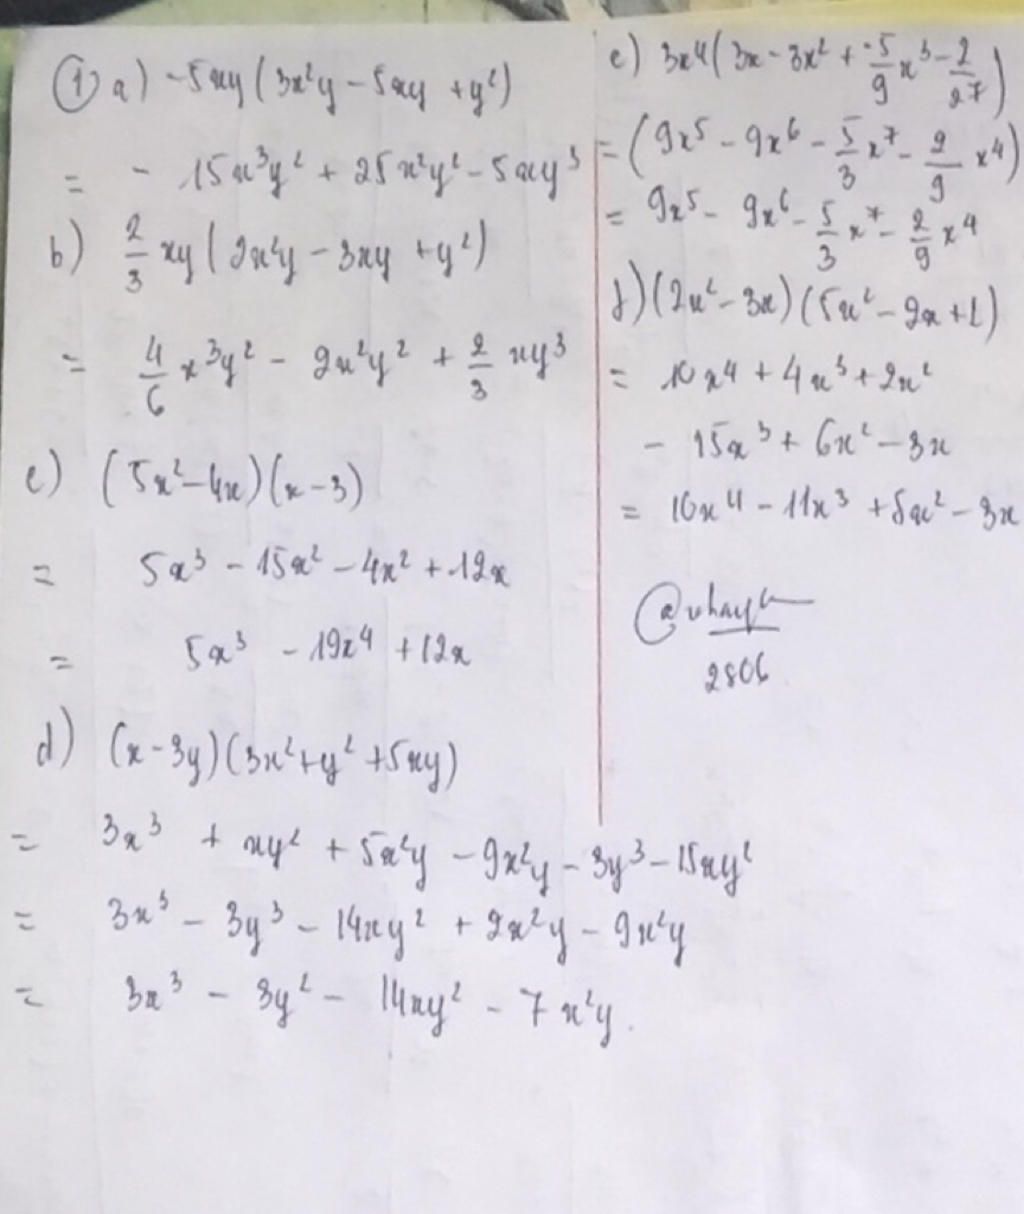 ① a) -5xy (3x²y - 5xy + y²)
= - 15x³y² + 25x²y² - 5xy³
b) 2/3 xy (2x²y - 3xy + y²)
= 4/6 x³y² - 2x²y² + 2/3 xy³
c) (5x² - 4x)(x - 3)
= 5x³ - 15x² - 4x² + 12x
= 5x³ - 19x⁴ + 12x
d) (x - 3y)(3x² + y² + 5xy)
= 3x³ + xy² + 5x²y - 9x²y - 3y³ - 15xy²
= 3x³ - 3y³ - 14xy² + 2x²y - 9x²y
= 3x³ - 3y² - 14xy² - 7x²y.
e) 3x⁴ (3x - 3x² + -5/9 x³ - 2/27)
= (9x⁵ - 9x⁶ - 5/3 x⁷ - 2/9 x⁴)
= 9x⁵ - 9x⁶ - 5/3 x⁷ - 2/9 x⁴
f) (2x² - 3x)(5x² - 2x + 1)
= 10x⁴ + 4x³ + 2x²
- 15x³ + 6x² - 3x
= 10x⁴ - 11x³ + 8x² - 3x
2806